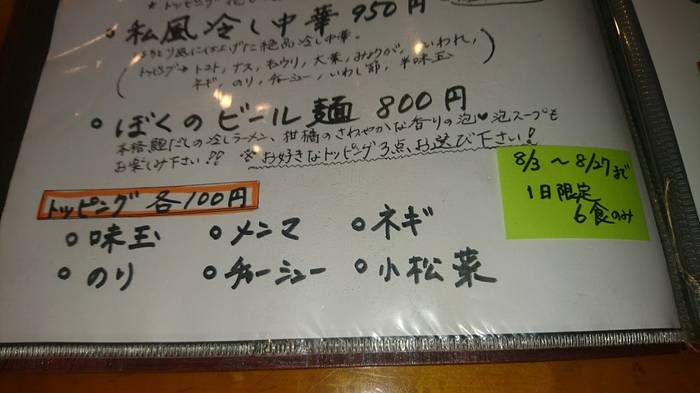 私風冷し中華 950円
絶品冷し中華。
トッピング→トマト, ナス, キュウリ, 大葉, みょうが, いわれ,
ネギ, のり, チャーシュー, いわし節, 半味玉
ぼくのビール麺 800円
本格麺だしの冷しラーメン、柑橘のさわやかな香りの泡♥泡スープも
お楽しみ下さい?? ※お好きなトッピング3点、お選び下さい!
8/3 〜 8/27まで
1日限定
6食のみ
トッピング 各100円
味玉 メンマ ネギ
のり チャーシュー 小松菜